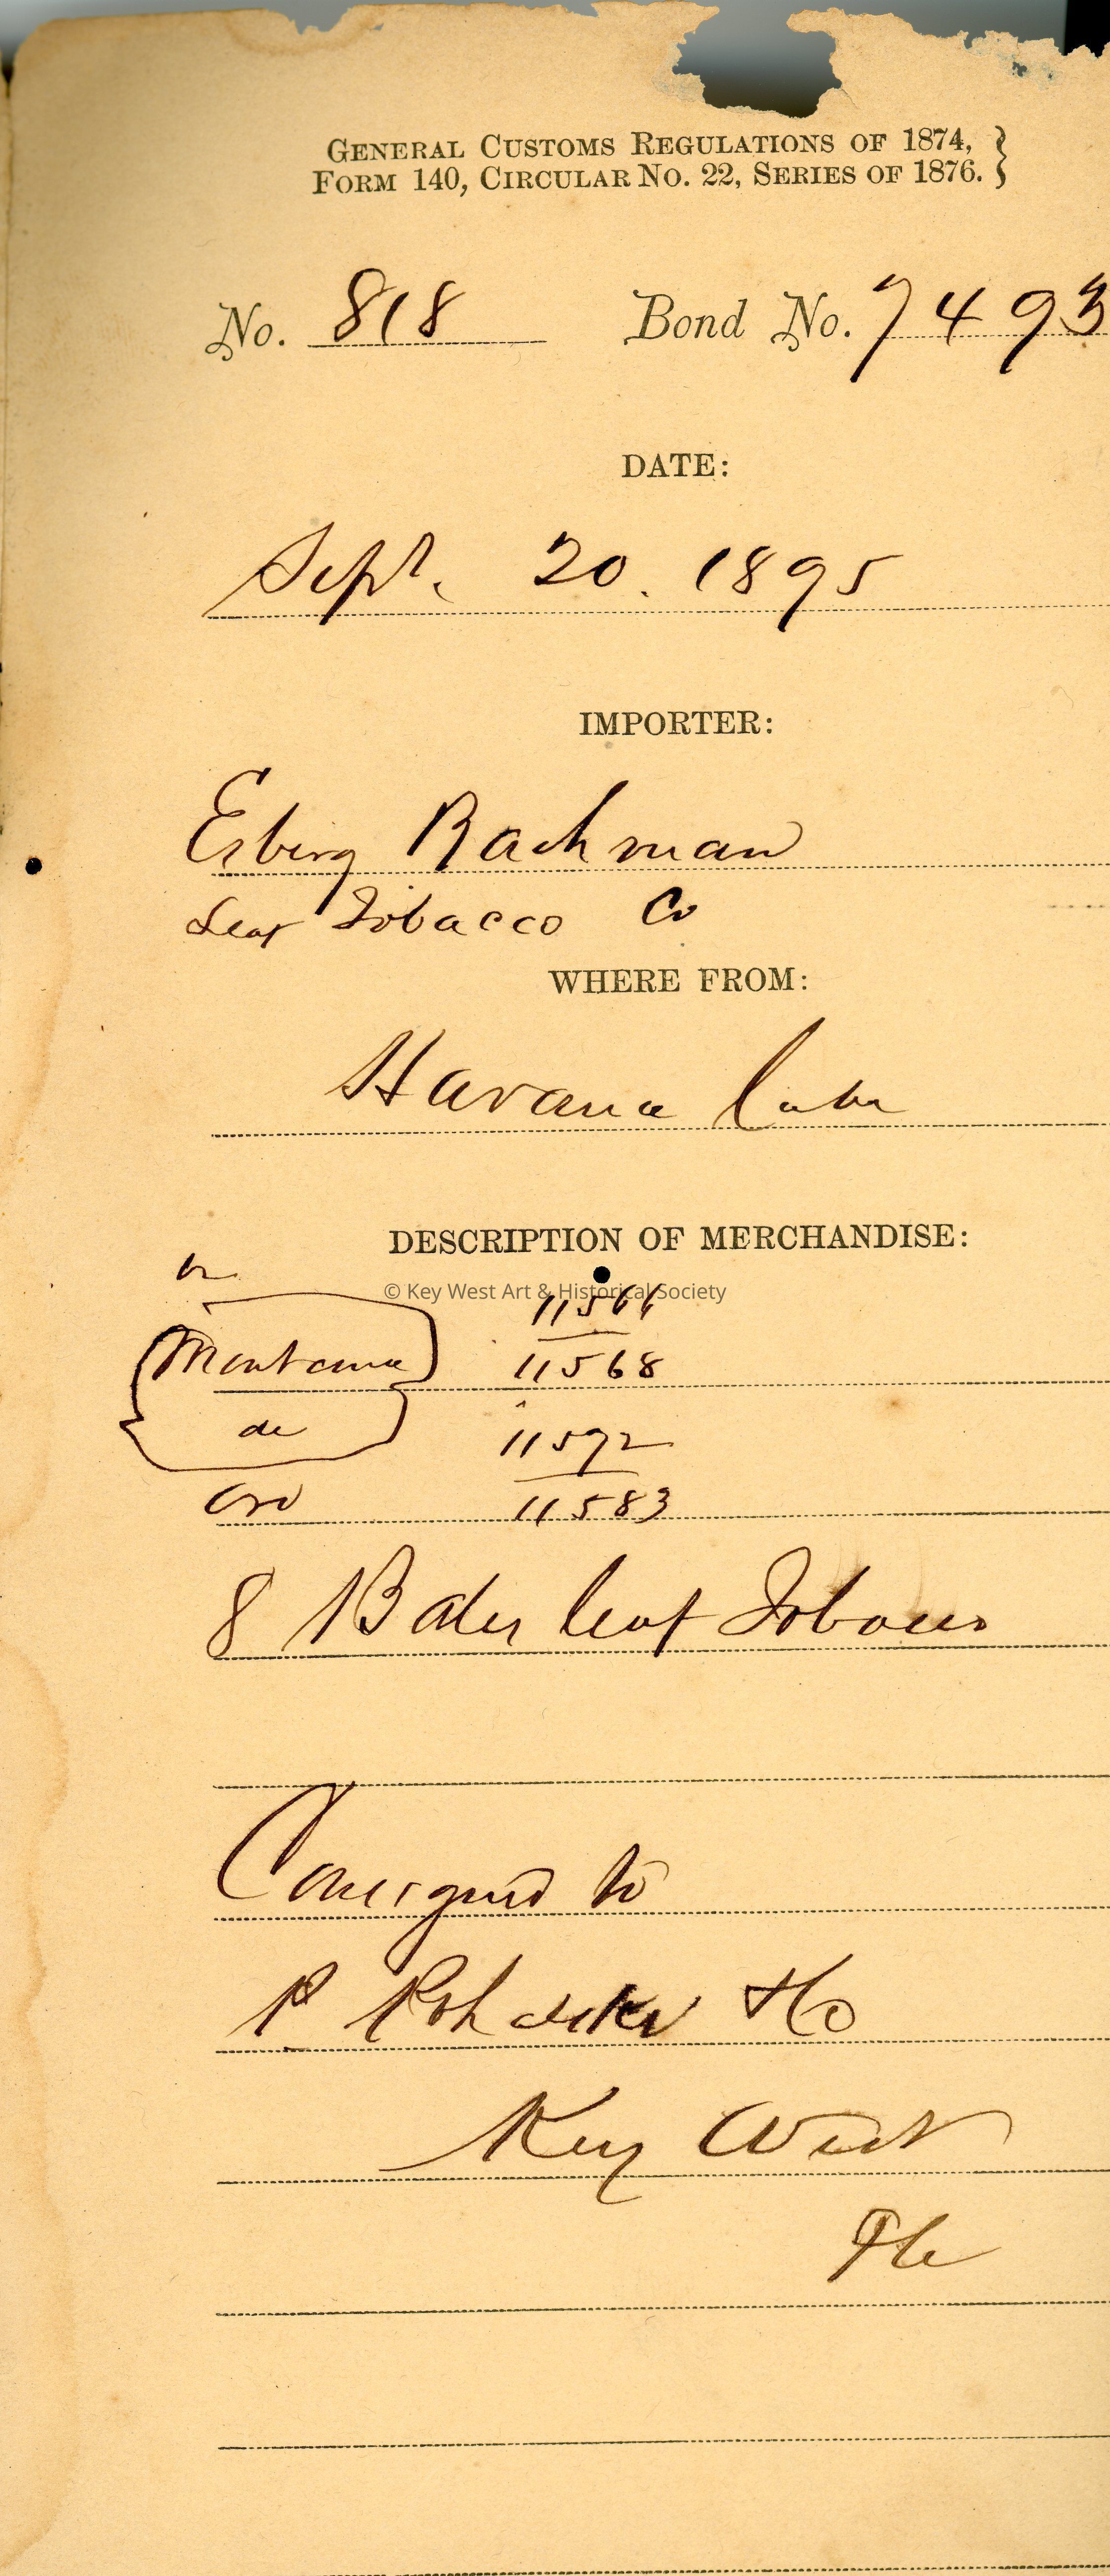 GENERAL CUSTOMS REGULATIONS OF 1874,
FORM 140, CIRCULAR NO. 22, SERIES OF 1876.
No. 818 Bond No. 7493
DATE:
Sept. 20. 1895
IMPORTER:
Esberg Bachman
Leaf Tobacco Co
WHERE FROM:
Havana Cuba
DESCRIPTION OF MERCHANDISE:
© Key West Art & Historical Society
11568
Montana
de
11572
Oro 11583
8 Bales leaf Tobacco
Consigned to
Key West
Fla